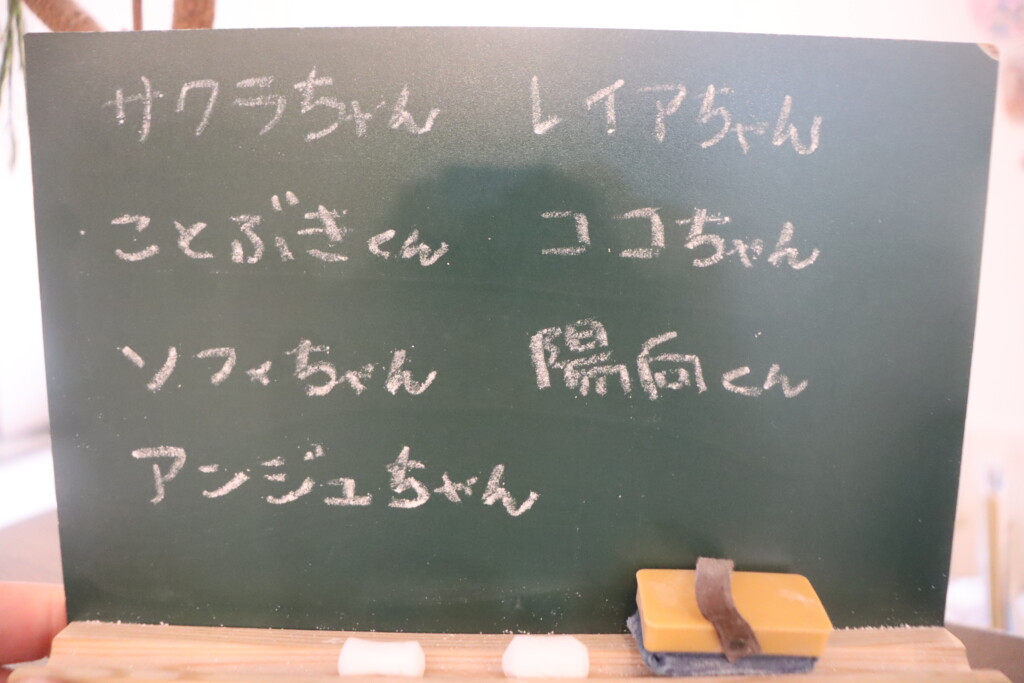 サクラちゃん レイアちゃん
ことぶきくん ココちゃん
ソフィちゃん 陽向くん
アンジュちゃん